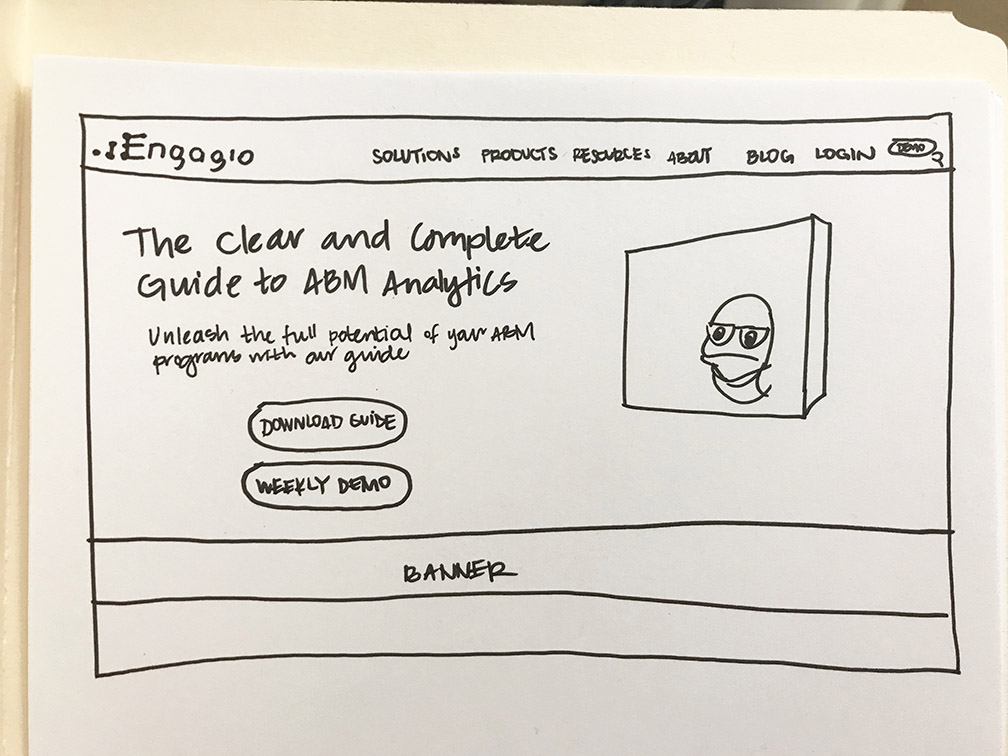 Engagio
SOLUTIONS PRODUCTS RESOURCES ABOUT BLOG LOGIN DEMO
The Clear and Complete
Guide to ABM Analytics
Unleash the full potential of your ABM
programs with our guide
DOWNLOAD GUIDE
WEEKLY DEMO
BANNER